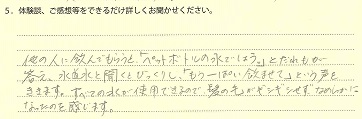 5．体験談、ご感想等をできるだけ詳しくお聞かせください。
他の人に飲んでもらうと、「ペットボトルの水でしょう。」とだれもが
答え、水道水と聞くとびっくりし、「もう一ぱい飲ませて」という声を
ききます。すべての水が使用できるので髪の毛がギシギシせずなめらかに
なったのを感じます。